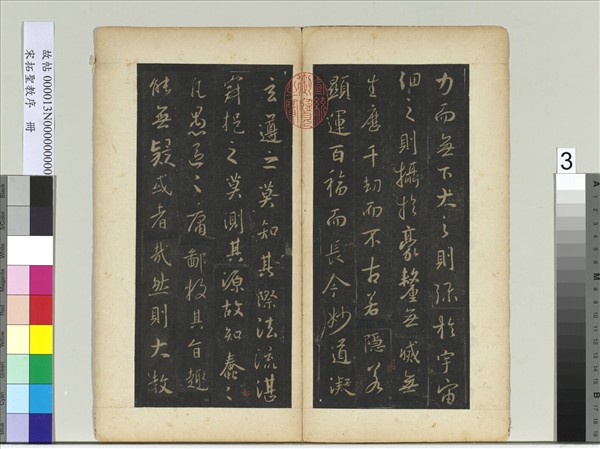 力而無下大之則弥於宇宙
細之則攝於豪釐無滅無
生歷千劫而不古若隱若
顯運百福而長今妙道凝
玄遵之莫知其際法流湛
寂挹之莫測其源故知蠢々
凡愚區々庸鄙投其旨趣
能無疑或者哉然則大教
宋拓聖教序 冊
3